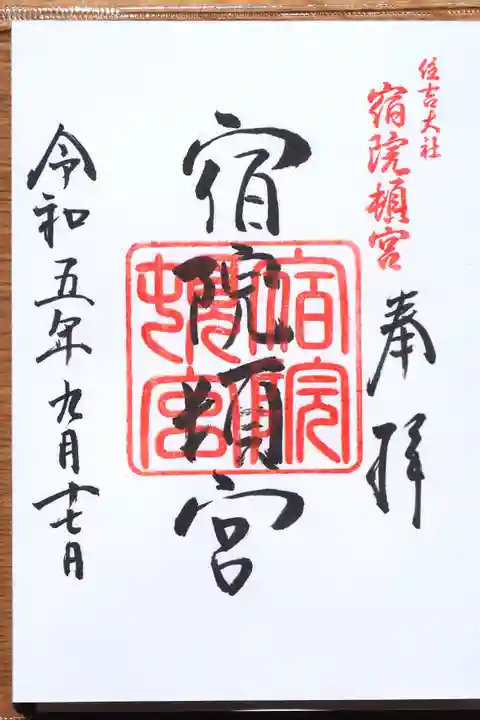 住吉大社
宿院頓宮
奉拝
宿院頓宮
宿院頓宮
令和五年九月十七日